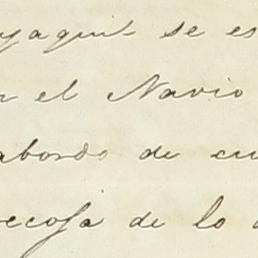 yaquil se es
r el Navio
abordo de cu
recosa de lo a